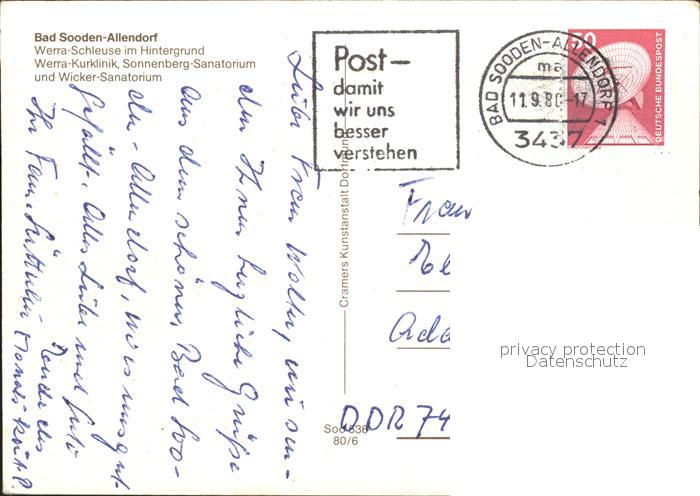 Bad Sooden-Allendorf
Werra-Schleuse im Hintergrund
Werra-Kurklinik, Sonnenberg-Sanatorium
und Wicker-Sanatorium
Liebe Frau Wolter, wir sen-
den Ihnen herzliche Grüße
aus dem schönen Bad Soo-
den-Allendorf, wo es uns gut
gefällt. Alles Liebe und Gute
Ihr Fam.
Cramers Kunstanstalt Dortmund
Soo 536
80/6
Post-
damit
wir uns
besser
verstehen
BAD SOODEN-ALLENDORF 1
ma
11.9.80-17
3437
50
DEUTSCHE BUNDESPOST
Frau
DDR 74
privacy protection
Datenschutz